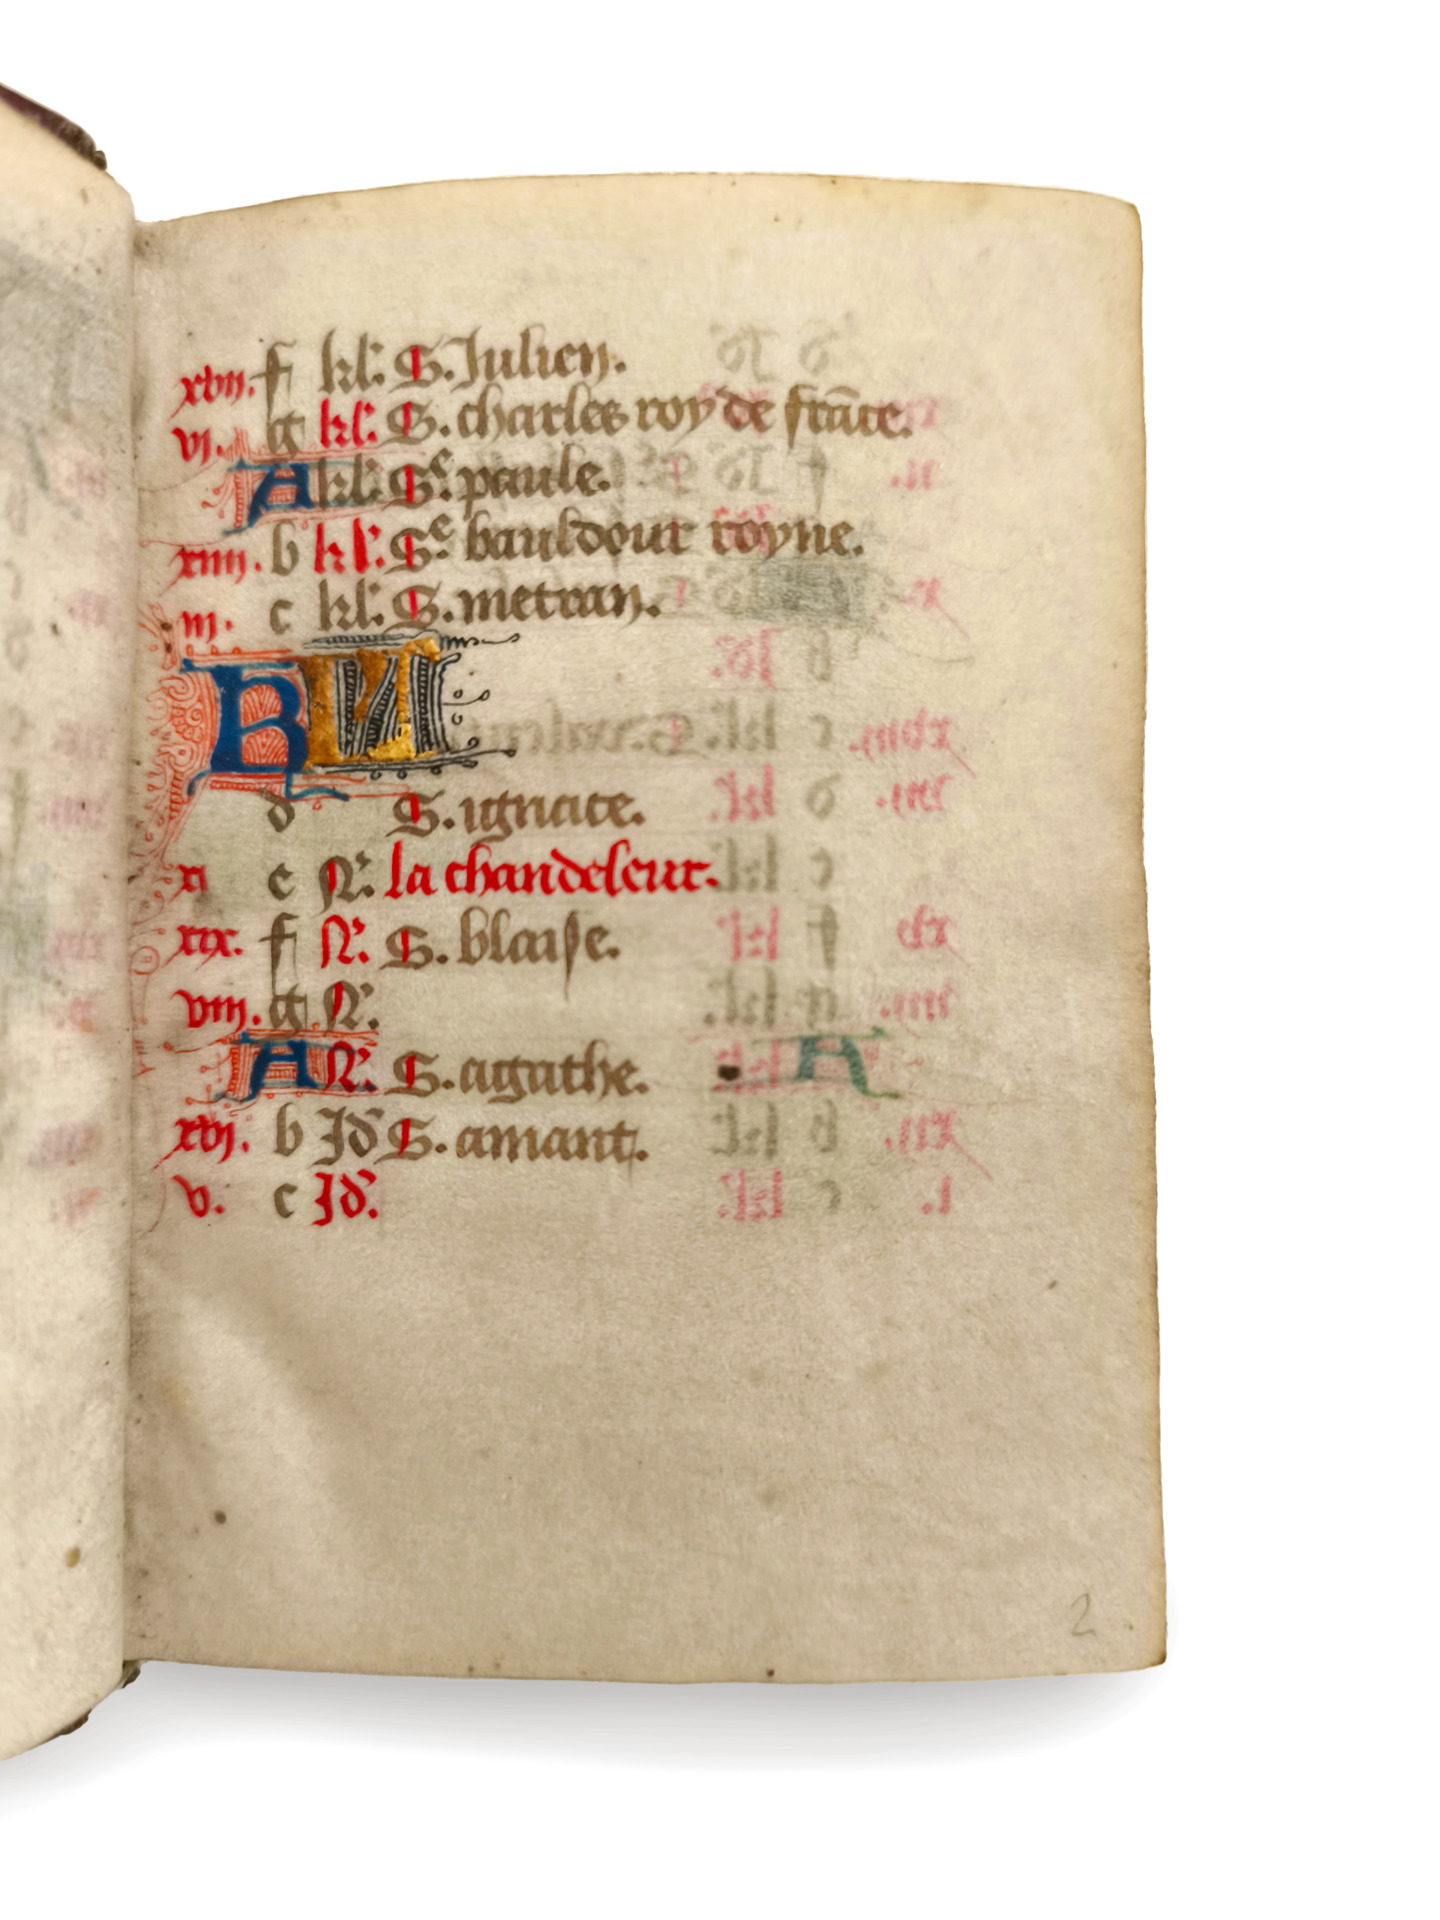 xvii. f kl'. S. Julien.
vi. g kl'. S. charles roy de frāce.
A kl'. Sᵉ. paule.
xiiii. b kl'. Sᵉ. baudour royne.
iii. c kl'. S. metran.
KL
d S. ignace.
xi e N'. la chandeleur.
xix. f N'. S. blaise.
viii. g N'.
A N'. S. agathe.
xvi. b Id' S. amant.
v. c Id'.
2